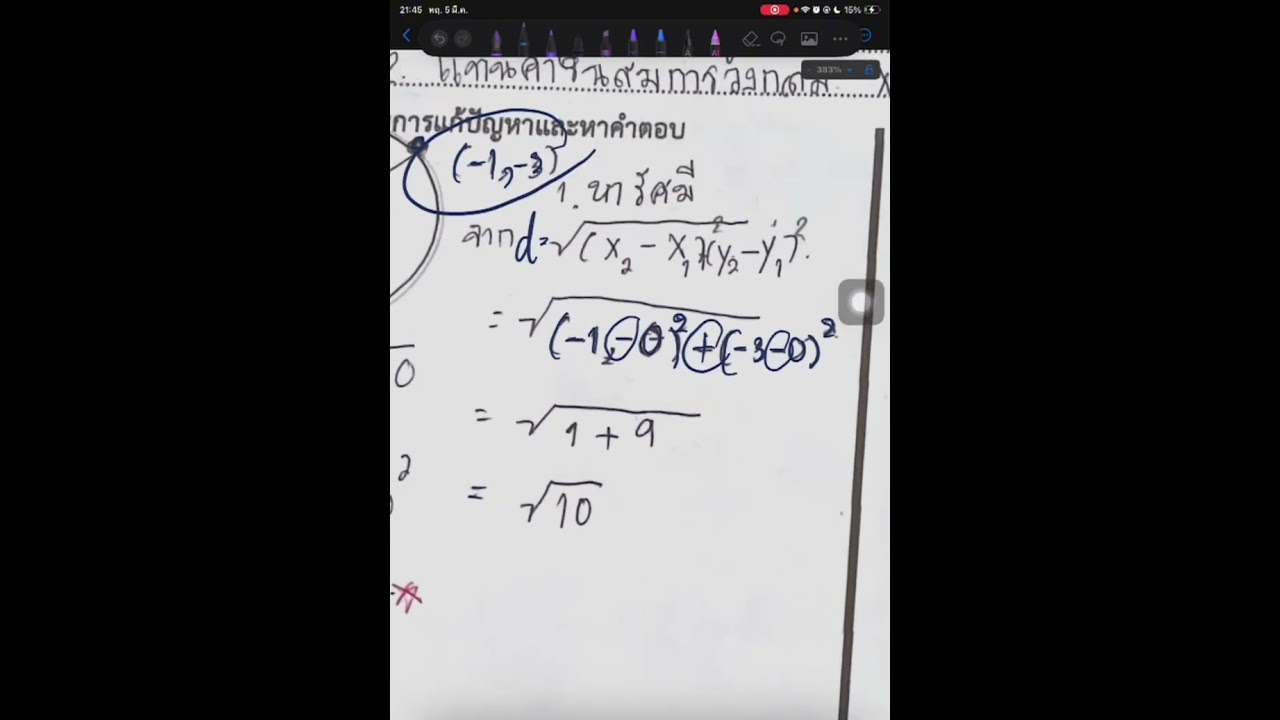 21:45 พฤ. 5 มี.ค. 15%
393%
2. แทนค่าในสมการวงกลม X
การแก้ปัญหาและหาคำตอบ
(-1,-3)
1. หารัศมี
จาก d=√(x₂ - x₁)²+(y₂ - y₁)².
= √(-1 - 0)² + (-3 - 0)²
0
= √1 + 9
2
= √10